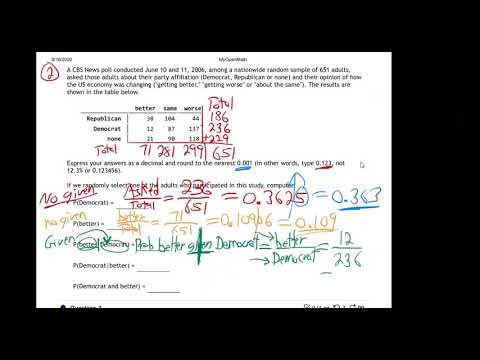 9/16/2020
MyOpenMath
2
A CBS News poll conducted June 10 and 11, 2006, among a nationwide random sample of 651 adults,
asked those adults about their party affiliation (Democrat, Republican or none) and their opinion of how
the US economy was changing ("getting better," "getting worse" or "about the same"). The results are
shown in the table below.
better same worse Total
Republican 38 104 44 186
Democrat 12 87 137 236
none 21 90 118 +229
Total 71 281 299 651
Express your answers as a decimal and round to the nearest 0.001 (in other words, type 0.123, not
12.3% or 0.123456).
If we randomly select one of the adults who participated in this study, compute:
No given
P(Democrat) = Asked/Total = 236/651 = 0.3625 = 0.363
no given
P(better) = better/Total = 71/651 = 0.10906 = 0.109
Given P(better|Democrat) = Prob better given Democrat = better/Democrat = 12/236
P(Democrat|better) =
P(Democrat and better) =